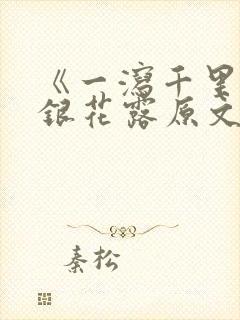 《一泻千里
银花露原文
秦松